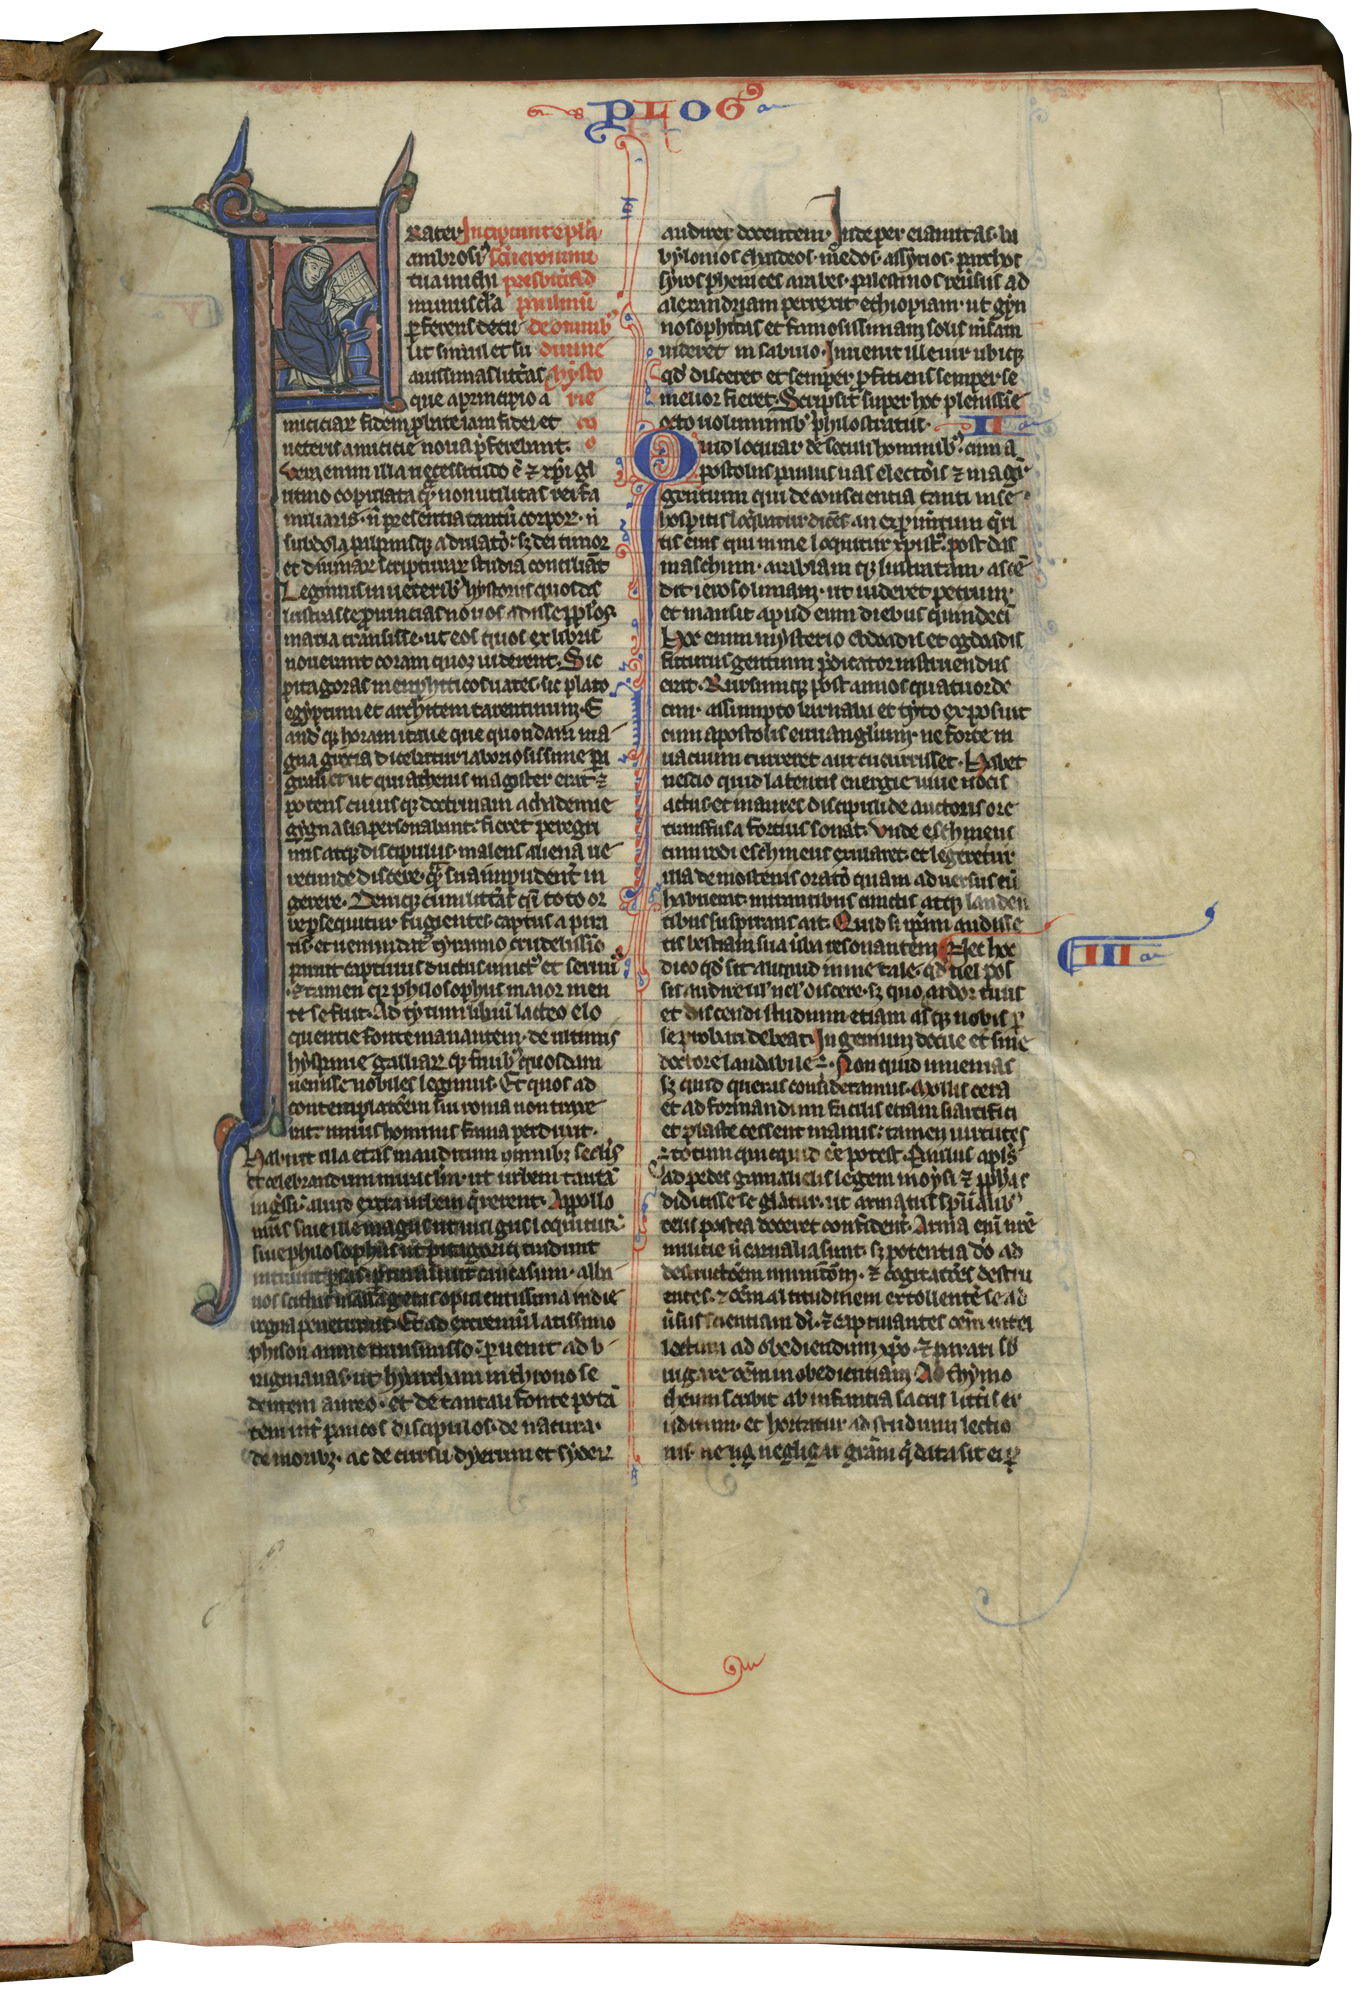 PLOG9
Rater Incipiunt epl'a
ambrosi9 sci ieronimi
tua michi presbiteri ad
munuscula paulinu
pferens detu de omnib9
lit simul et su diuine
auissimas litt'as hysto
que a principio a rie
miciciar fidem probate iam fidei et
ueteris amicicie noua pferebant.
Vera enim illa necessitudo e et xpi gl
utino copulata qua non utilitas rei fa
miliaris. n presentia tantu corpor. n
subdola palpansq; adulato. s; dei timor
et diuinar scripturar studia conciliant
Legimus in ueterib9 hystoriis quosda
lustrasse prouincias nouos adisse pplos.
maria transisse. ut eos quos ex libris
nouerant coram quoq; uiderent. Sic
pitagoras memphiticos uates. sic plato
egyptum et architem tarentinum. E
and q; horam italie que quondam ma
gna grecia dicebatur laboriosissime pe
grauit et ut qui athenis magister erat et
potens cuiusq; doctrinam achademie
gygnasia personabant. fieret peregri
nus atq; discipulus. malens aliena ue
recunde discere. qua sua impudent in
gerere. Deniq; cum litt'as qsi toto or
be psequitur fugientes. captus a pira
tis. et uenundat9 tyranno crudelissio
paruit captiuus uinct9 et seruus
Tamen q philosophus maior emen
te se fuit. Ad tytum liuiu lacteo elo
quentie fonte manantem. de ultimis
hyspanie galliarq; finib9 quosdam
uenisse nobiles legimus. Et quos ad
contemplatoem sui roma non traxe
rat. unius hominis fama perduxit.
Habuit illa etas inauditum omnibus seclis
et celebrandum miraculum. ut urbem tanta
ingssi. aliud extra urbem qrerent. Appollo
nius siue ille magus ut uulgus loquitur.
siue philosophus ut pitagorici tradunt
intrauit psas. ptransiuit caucasum. alba
nos scithas massagetas opulentissima indie
regna penetrauit. Et ad extremu latissimo
phison amne transmisso. puenit ad b
ragmanas. ut hyarcham in throno se
dentem aureo. et de tantali fonte pota
tem int paucos discipulos. de natura.
de moribz. ac de cursu dyerum et syder
audiret docentem. Inde per elamitas. ba
bylonios chaldeos. medos. assyrios. parthos
syros phenices arabes. palestinos reusus ad
alexandriam perrexit ethiopiam. ut gym
nosophistas et famosissimam solis msam
uideret in sabulo. Inuenit ille uir ubiq;
qd disceret et semper pficiens semper se
melior fieret. Scripsit super hoc plenissie
octo uoluminib9 philostratus. II
Quid loquar de secli hominib9. cum a
postolus paulus uas electois et magr
gentium qui de conscientia tanti in se
hospitis loqbatur dices. an experimtum qri
tis eius qui in me loquitur xpist9. post da
maschum. arabiam q; lustratam. ascen
dit ierosolimam. ut uideret petrum.
et mansit apud eum diebus quindeci
Hoc enim mysterio ebdoadis et ogdoadis
futurus gentium pdicator instruendus
erat. Rursumq; post annos quatuorde
cim. assumpto barnaba et tyto exposuit
cum apostolis euuangliium. ne forte in
uacuum curreret aut cucurrisset. Habet
nescio quid latentis energie uiue uocis
actus. et in aures discipuli de auctoris ore
transfusa fortius sonat. Unde eschineus
cum rodi eschineus exularet. et legeretur
illa demostenis orato quam aduersus eu
habuerat. mirantibus cunctis atq; landen
tibus suspirans ait. Quid si ipam audisse
tis bestiam sua uba resonantem. Nec hoc III
dico qd sit aliquid in me tale. qd uel pos
sis audire ul uel discere. s; quo ardor tuus
et discendi studium etiam absq; nobis p
se probari debeat. Ingenium docile et sine
doctore laudabile e. Non quid inuenias
s; quid queras consideramus. Mollis cera
et ad formandum facilis etiam si artifici
et plaste cessent manus. tamen uirtutes
totum quicquid ee potest. Paulus apls
ad pedes gamalielis legem moysi et pphas
didicisse se gliatur. ut armatus spualib9
telis postea doceret confident. Arma eni nre
militie n carnalia sunt. s; potentia do ad
destructoem munitom. et cogitatoes destru
entes. et oem altitudinem extollente se ad
usus scientiam di. et captiuantes oem intel
lectum ad obediendum xpo. et parati sb
iugare oem inobedientiam. Ad thymo
theum scribit ab infantia sacris littis er
uditum. et hortatur ad studium lectio
nis. ne neg negligat gram q data sit ei p